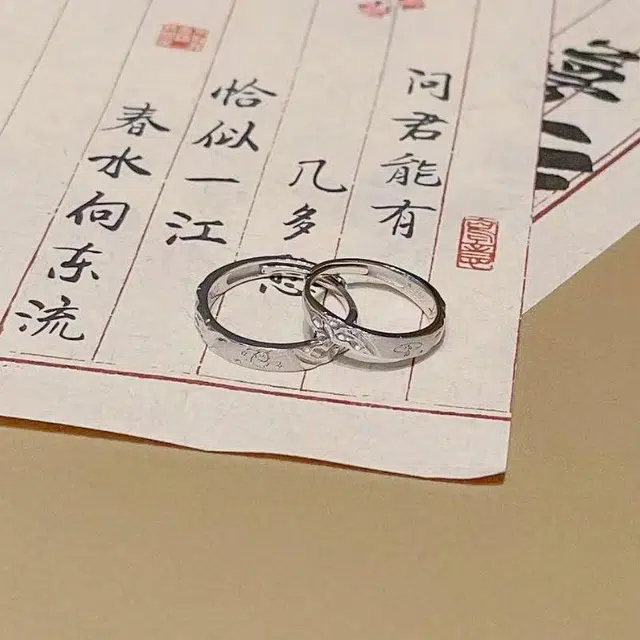 问君能有
几多
恰似一江
春水向东流